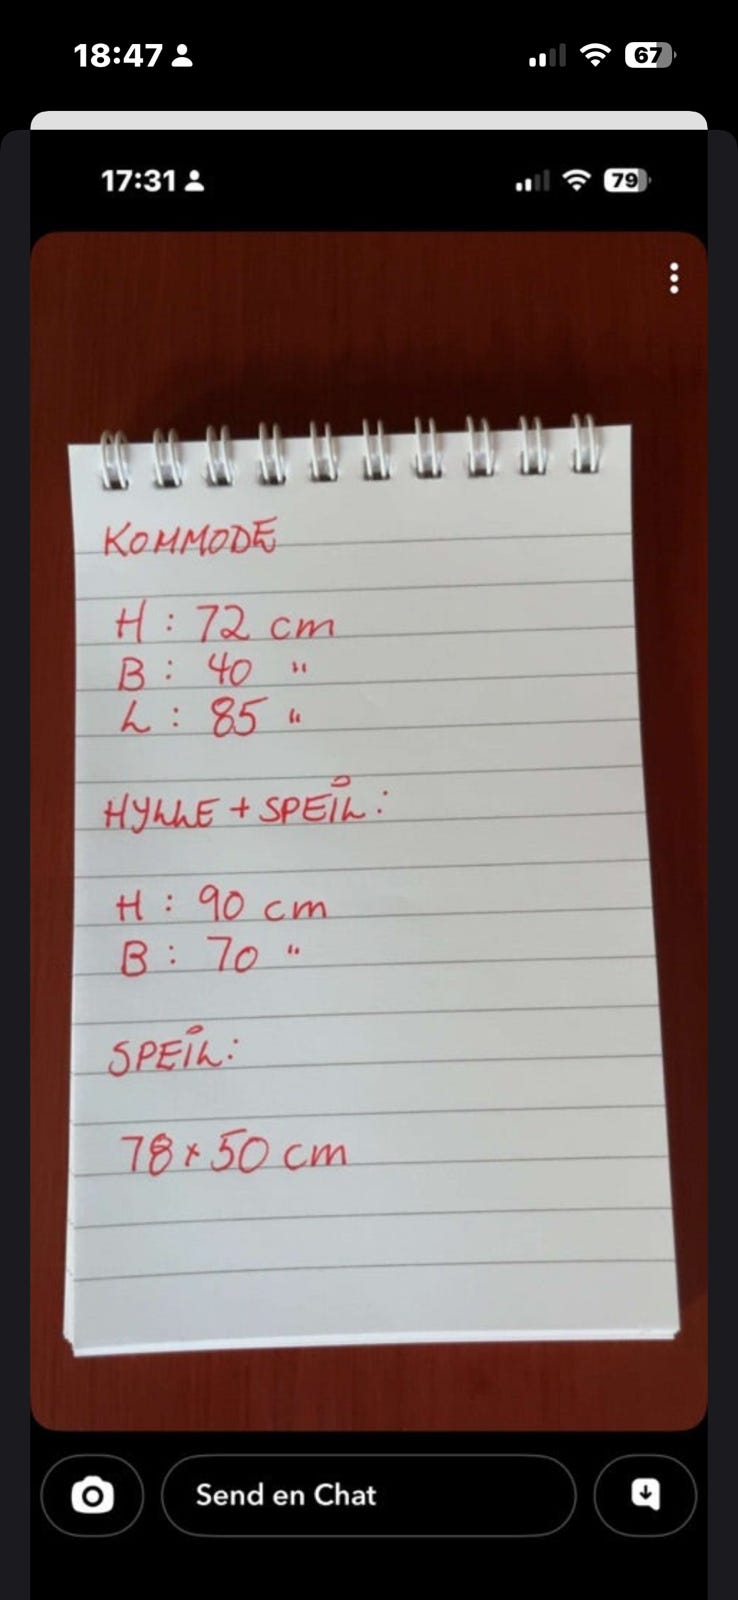 18:47
67
17:31
79
KOMMODE
H : 72 cm
B : 40 "
L : 85 "
HYLLE + SPEIL :
H : 90 cm
B : 70 "
SPEIL :
78 x 50 cm
Send en Chat